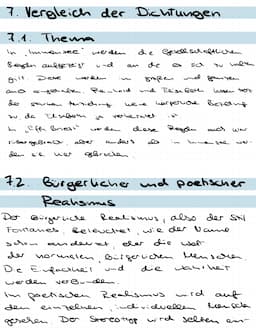 7. Vergleich der Dichtungen
7.1. Thema
In "Immensee" werden die Gesellschaftlichen
Regeln aufgezeigt und an die es sich zu halten
gilt. Diese werden in großen und ganzen
auch eingehalten. Reinhard und Elisabeth lassen
die keine körperliche Beziehung
zu, da Elisabeth verheiratet ist.
In "Effi Briest" werden diese Regeln auch
aber anders als in Immensee
den sie hier gebrochen.
7.2. Bürgerlicher und poetischer
Realismus
Der Bürgerliche Realismus, also der Stil
Fontanes, beleuchtet, wie der Name
schon andeutet, eher die Welt
der normalen, bürgerlichen Menschen.
Die Einfachheit und die Wahrheit
werden verbunden.
Im poetischen Realismus wird auf
den einzelnen, individuellen Mensch
gesehen. Der Stereotyp wird selten